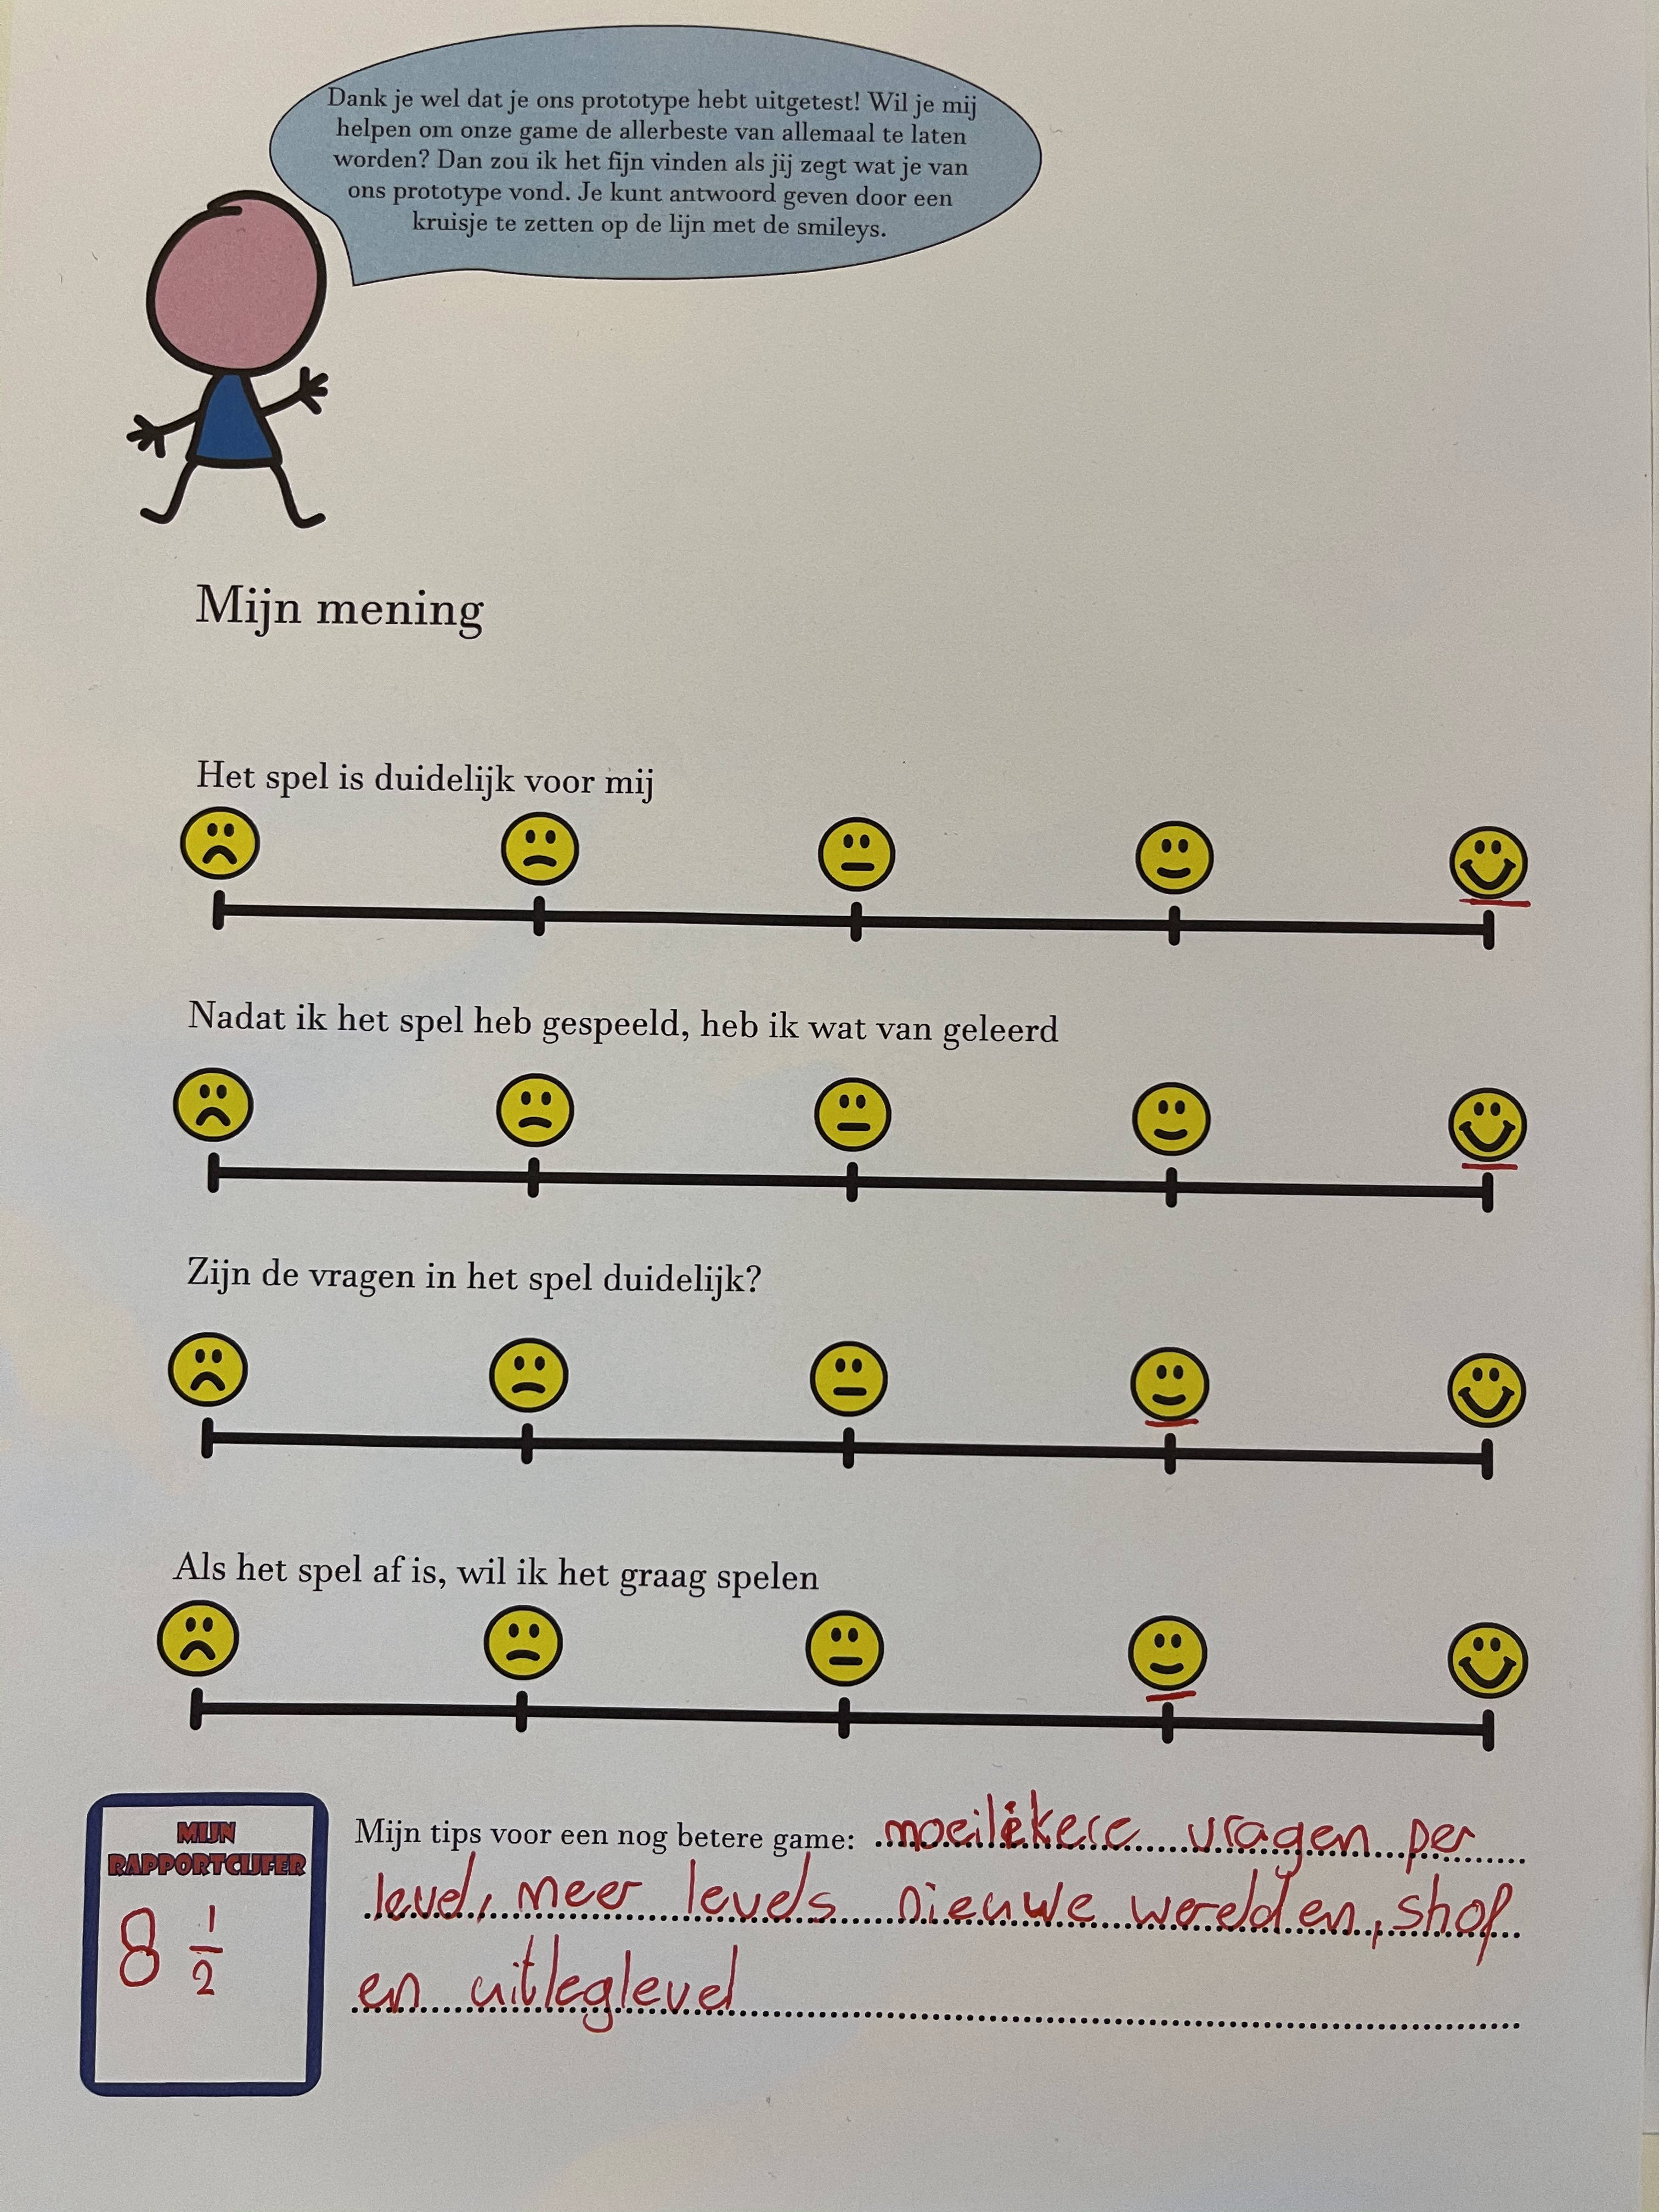 Dank je wel dat je ons prototype hebt uitgetest! Wil je mij
helpen om onze game de allerbeste van allemaal te laten
worden? Dan zou ik het fijn vinden als jij zegt wat je van
ons prototype vond. Je kunt antwoord geven door een
kruisje te zetten op de lijn met de smileys.
Mijn mening
Het spel is duidelijk voor mij
Nadat ik het spel heb gespeeld, heb ik wat van geleerd
Zijn de vragen in het spel duidelijk?
Als het spel af is, wil ik het graag spelen
MIJN
RAPPORTCIJFER
8 1/2
Mijn tips voor een nog betere game: moeilijkere vragen per
level, meer levels nieuwe werelden, shop
en uitleglevel